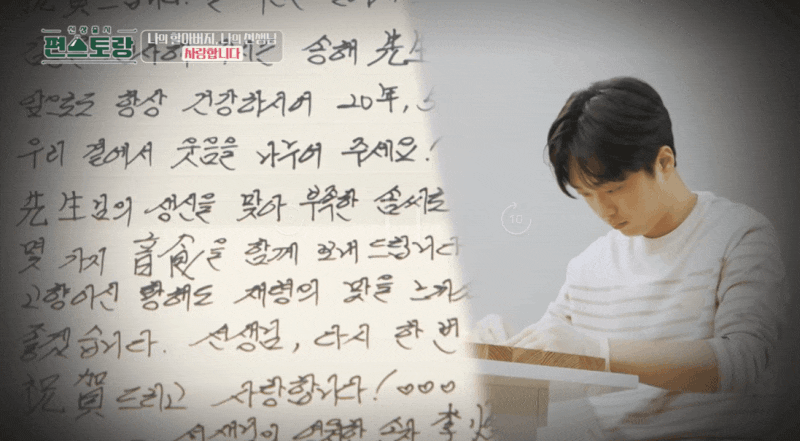 신상출시
편스토랑
나의 할아버지, 나의 선생님
사랑합니다
祝賀드립니다!
송해 先生
앞으로도 항상 건강하시어 20年,
우리 곁에서 웃음을 나누어 주세요!
先生님의 생신을 맞아 부족한 솜씨로
몇 가지 音食을 함께 보내드립니다
고향이신 황해도 재령의 맛을
좋겠습니다. 선생님, 다시 한 번
祝賀드리고 사랑합니다! ♡♡♡
10